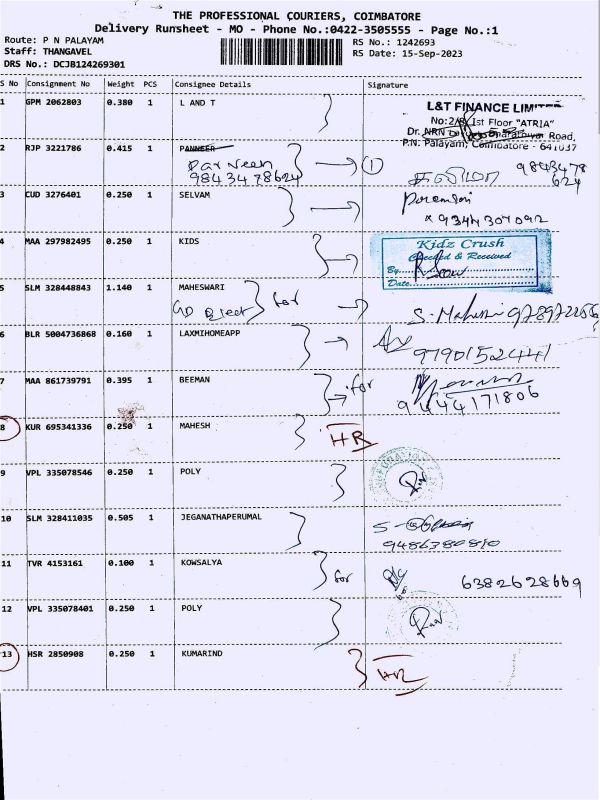 THE PROFESSIONAL COURIERS, COIMBATORE
Delivery Runsheet - MO - Phone No.:0422-3505555 - Page No.:1
Route: P N PALAYAM
RS No.: 1242693
Staff: THANGAVEL
RS Date: 15-Sep-2023
DRS No.: DCJB124269301
S No Consignment No Weight PCS Consignee Details Signature
1 GPM 2062803 0.380 1 L AND T
L&T FINANCE LIMITED
1st Floor "ATRIA"
Road,
P.N. Palayam, Coimbatore - 641037
2 RJP 3221786 0.415 1 PANNEER
Parveen
9843478624
1
கலிமா
9843478
624
3 CUD 3276401 0.250 1 SELVAM
9344307092
4 MAA 297982495 0.250 1 KIDS
Kidz Crush
Checked & Received
By
Date
5 SLM 328448843 1.140 1 MAHESWARI
for
6 BLR 5004736868 0.160 1 LAXMIHOMEAPP
9790152441
7 MAA 861739791 0.395 1 BEEMAN
for
9444171806
8 KUR 695341336 0.250 1 MAHESH
HR
9 VPL 335078546 0.250 1 POLY
10 SLM 328411035 0.505 1 JEGANATHAPERUMAL
9486380810
11 TVR 4153161 0.100 1 KOWSALYA
for
6382628669
12 VPL 335078401 0.250 1 POLY
13 HSR 2850908 0.250 1 KUMARIND
HR